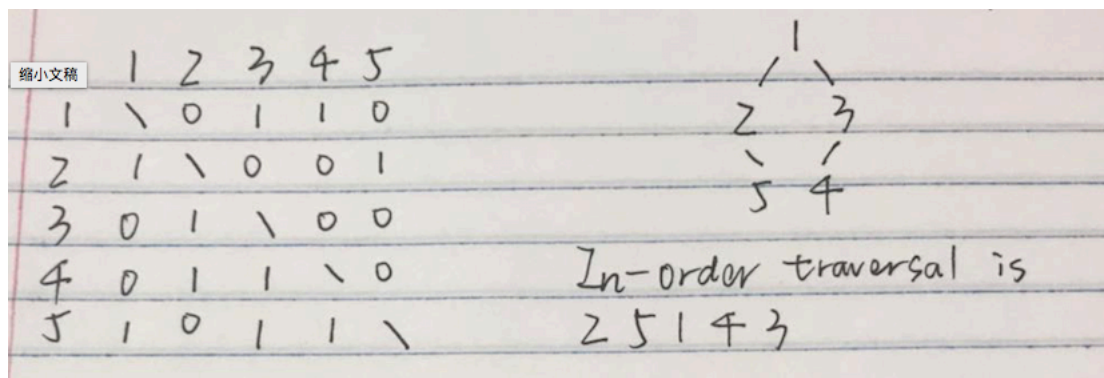 1 2 3 4 5
缩小文稿
1 \ 0 1 1 0
2 1 \ 0 0 1
3 0 1 \ 0 0
4 0 1 1 \ 0
5 1 0 1 1 \
1
2 3
5 4
In-order traversal is
2 5 1 4 3